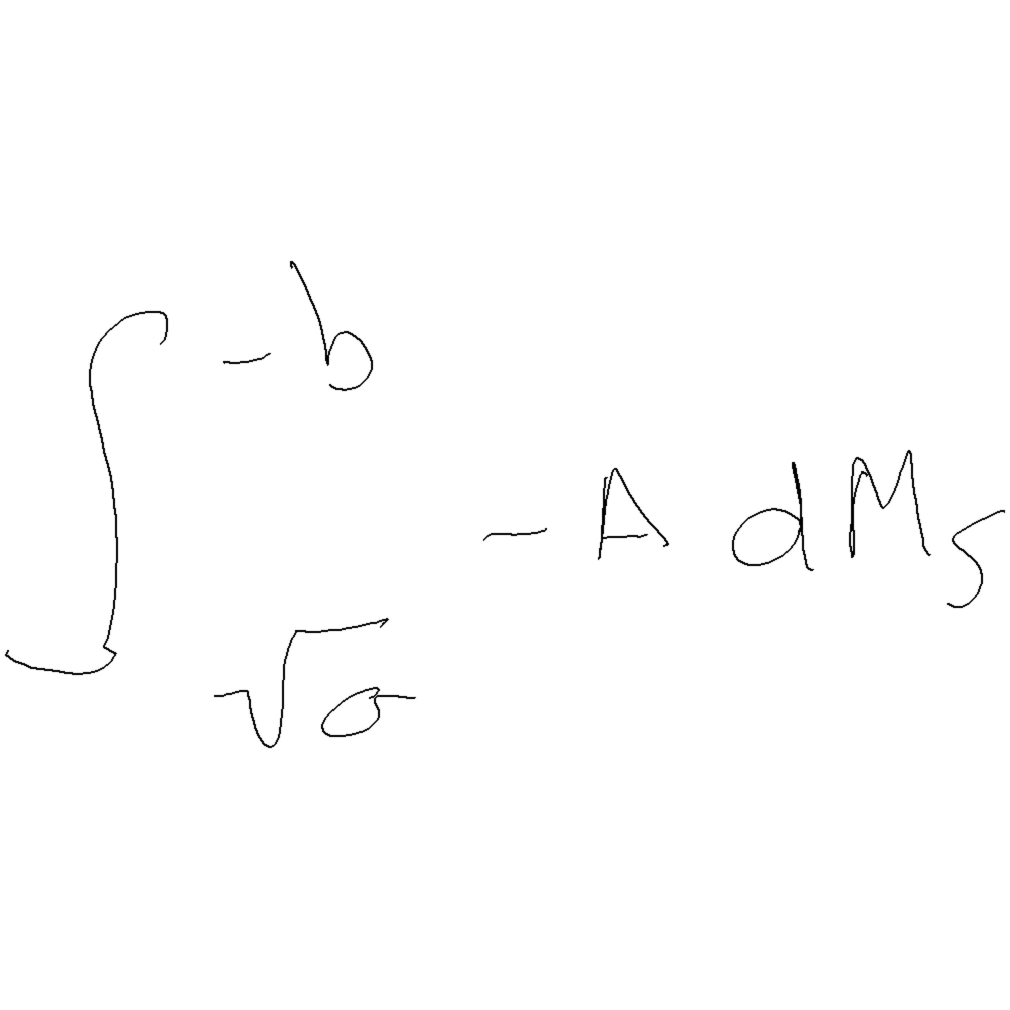 \int_{\sqrt{\sigma}}^{-b} -A dM_s